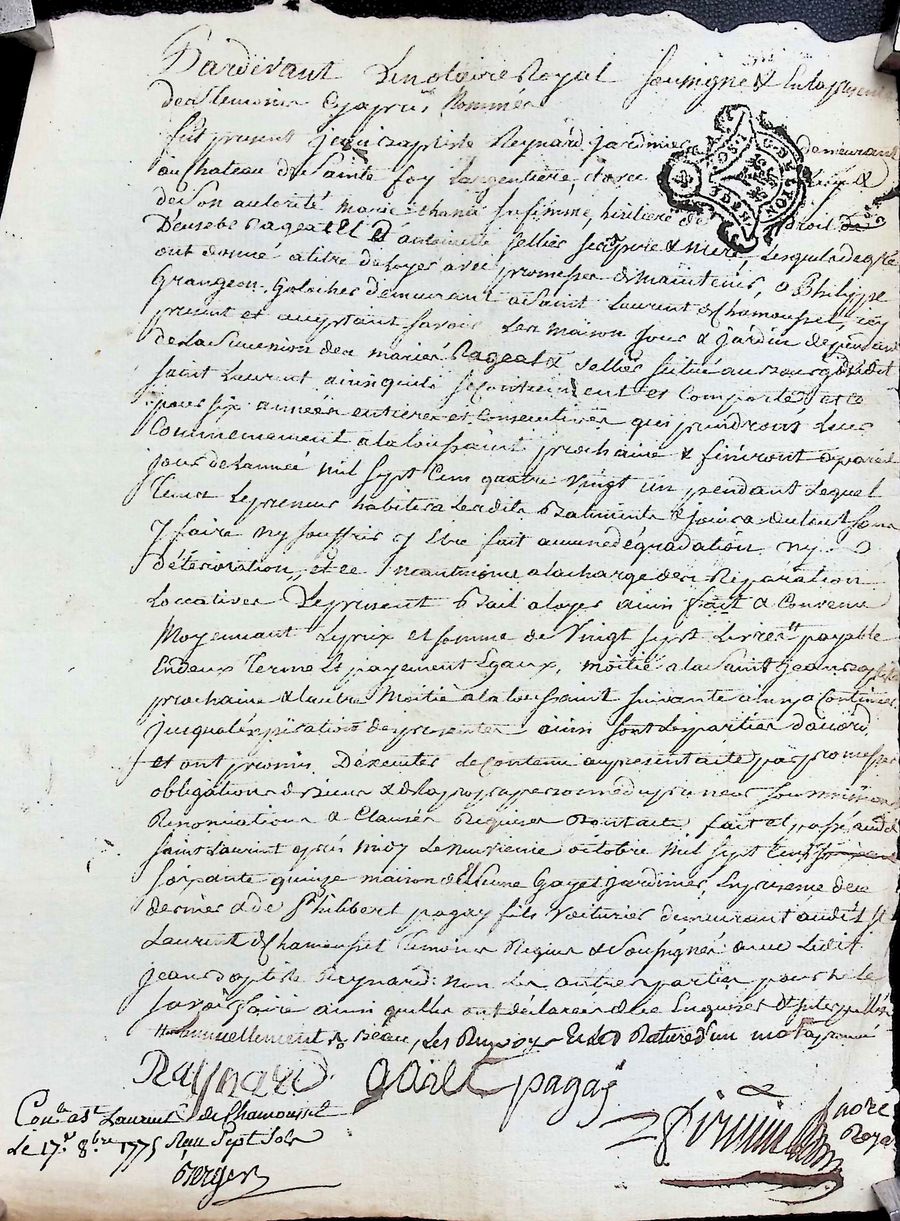 Pardevant Le notaire Royal soussigné & En la presence
des temoins Cyapres Nommés
fut present Jean Baptiste Reynard Jardinier demeurant
au Chateau de Sainte foy Largentiere, et avec
de son autorité Marie sa femme, heritiere de droit
D'eusebe Pageat & d'antoinette Sellier ses pere & mere, Lesquels de gré
ont donné a titre de loyer avec promesse de maintenir, a Philippe
Grangeon, Galocher demeurant a Saint Laurent de Chamousset, icy
present et acceptant Savoir Les maison Cour & Jardin dependant
de la Succession des mariés Pageat & Sellier Scitué au Bourg dudit
Saint Laurent, ainsi quils Se Contiennent et Comporte et ce
pour six années entieres et Consecutives qui prendront Leur
Commencement a la toussaint prochaine & finiront a pareil
jour de Lannée Mil Sept Cent quatre Vingt un, pendant Lequel
Tems Le preneur habitera Lesdits Batiments & jouira du tout Sans
y faire ny souffrir y Etre fait aucune dégradation ny
détérioration, et ce neantmoins a la charge des Réparations
Loccatives Le present Bail a loyer ainsi fait & Convenu
Moyennant Le prix et somme de Vingt sept Livres payable
En deux Terme & payement Egaux, moitié a la Saint Jean Baptiste
prochaine & lautre Moitié a la toussaint Suivante ainsy a Continuer
jusqua lexpiration des presentes ainsi sont Les parties daccord
et ont promis D'executer Le Contenu au present acte par promesses
obligations de biens & de la propre personne du preneur Soumissions
Renonciations & Clauses Requises Dont acte, fait et passé audit
Saint Laurent apres midy Le neuvieme octobre Mil Sept Cent
Soixante quinze maison d'Etienne Gayet Jardinier, En presence de ce
dernier & de Philibert pagay fils Voiturier demeurant audit St
Laurent de Chamousset Temoins Requis & Soussignés avec Ledit
Jean Baptiste Reynard non Les autres parties pour ne le
Savoir faire ainsi quelles ont déclarées de ce Enquises & Interpellés
Le Rature d'un mot aprouvé
Raynard gaiet pagaÿ
nore
Royal
Con.le a St Laurent de Chamousset
Le 17.e 8.bre 1775 Reçu Sept Sols
Berger